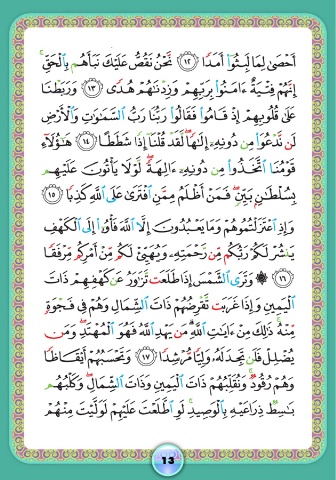 أَحْصَىٰ لِمَا لَبِثُوٓا۟ أَمَدًا ﴿١٢﴾ نَّحْنُ نَقُصُّ عَلَيْكَ نَبَأَهُم بِٱلْحَقِّ ۚ
إِنَّهُمْ فِتْيَةٌ ءَامَنُوا۟ بِرَبِّهِمْ وَزِدْنَٰهُمْ هُدًى ﴿١٣﴾ وَرَبَطْنَا
عَلَىٰ قُلُوبِهِمْ إِذْ قَامُوا۟ فَقَالُوا۟ رَبُّنَا رَبُّ ٱلسَّمَٰوَٰتِ وَٱلْأَرْضِ
لَن نَّدْعُوَا۟ مِن دُونِهِۦٓ إِلَٰهًا ۖ لَّقَدْ قُلْنَآ إِذًا شَطَطًا ﴿١٤﴾ هَٰٓؤُلَآءِ
قَوْمُنَا ٱتَّخَذُوا۟ مِن دُونِهِۦٓ ءَالِهَةً ۖ لَّوْلَا يَأْتُونَ عَلَيْهِم
بِسُلْطَٰنٍۭ بَيِّنٍ ۖ فَمَنْ أَظْلَمُ مِمَّنِ ٱفْتَرَىٰ عَلَى ٱللَّهِ كَذِبًا ﴿١٥﴾
وَإِذِ ٱعْتَزَلْتُمُوهُمْ وَمَا يَعْبُدُونَ إِلَّا ٱللَّهَ فَأْوُۥٓا۟ إِلَى ٱلْكَهْفِ
يَنشُرْ لَكُمْ رَبُّكُم مِّن رَّحْمَتِهِۦ وَيُهَيِّئْ لَكُم مِّنْ أَمْرِكُم مِّرْفَقًا
﴿١٦﴾ ۞ وَتَرَى ٱلشَّمْسَ إِذَا طَلَعَت تَّزَٰوَرُ عَن كَهْفِهِمْ ذَاتَ
ٱلْيَمِينِ وَإِذَا غَرَبَت تَّقْرِضُهُمْ ذَاتَ ٱلشِّمَالِ وَهُمْ فِى فَجْوَةٍ
مِّنْهُ ۚ ذَٰلِكَ مِنْ ءَايَٰتِ ٱللَّهِ ۗ مَن يَهْدِ ٱللَّهُ فَهُوَ ٱلْمُهْتَدِ ۖ وَمَن
يُضْلِلْ فَلَن تَجِدَ لَهُۥ وَلِيًّا مُّرْشِدًا ﴿١٧﴾ وَتَحْسَبُهُمْ أَيْقَاظًا
وَهُمْ رُقُودٌ ۚ وَنُقَلِّبُهُمْ ذَاتَ ٱلْيَمِينِ وَذَاتَ ٱلشِّمَالِ ۖ وَكَلْبُهُم
بَٰسِطٌ ذِرَاعَيْهِ بِٱلْوَصِيدِ ۚ لَوِ ٱطَّلَعْتَ عَلَيْهِمْ لَوَلَّيْتَ مِنْهُمْ
13